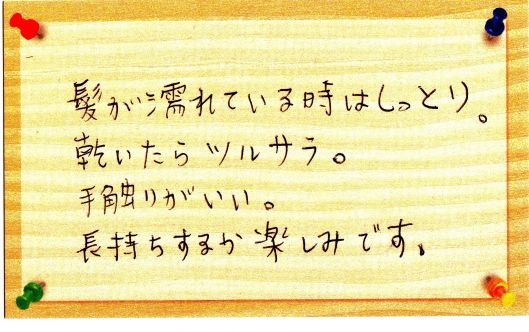 髪が濡れている時はしっとり。
乾いたらツルサラ。
手触りがいい。
長持ちするか楽しみです。